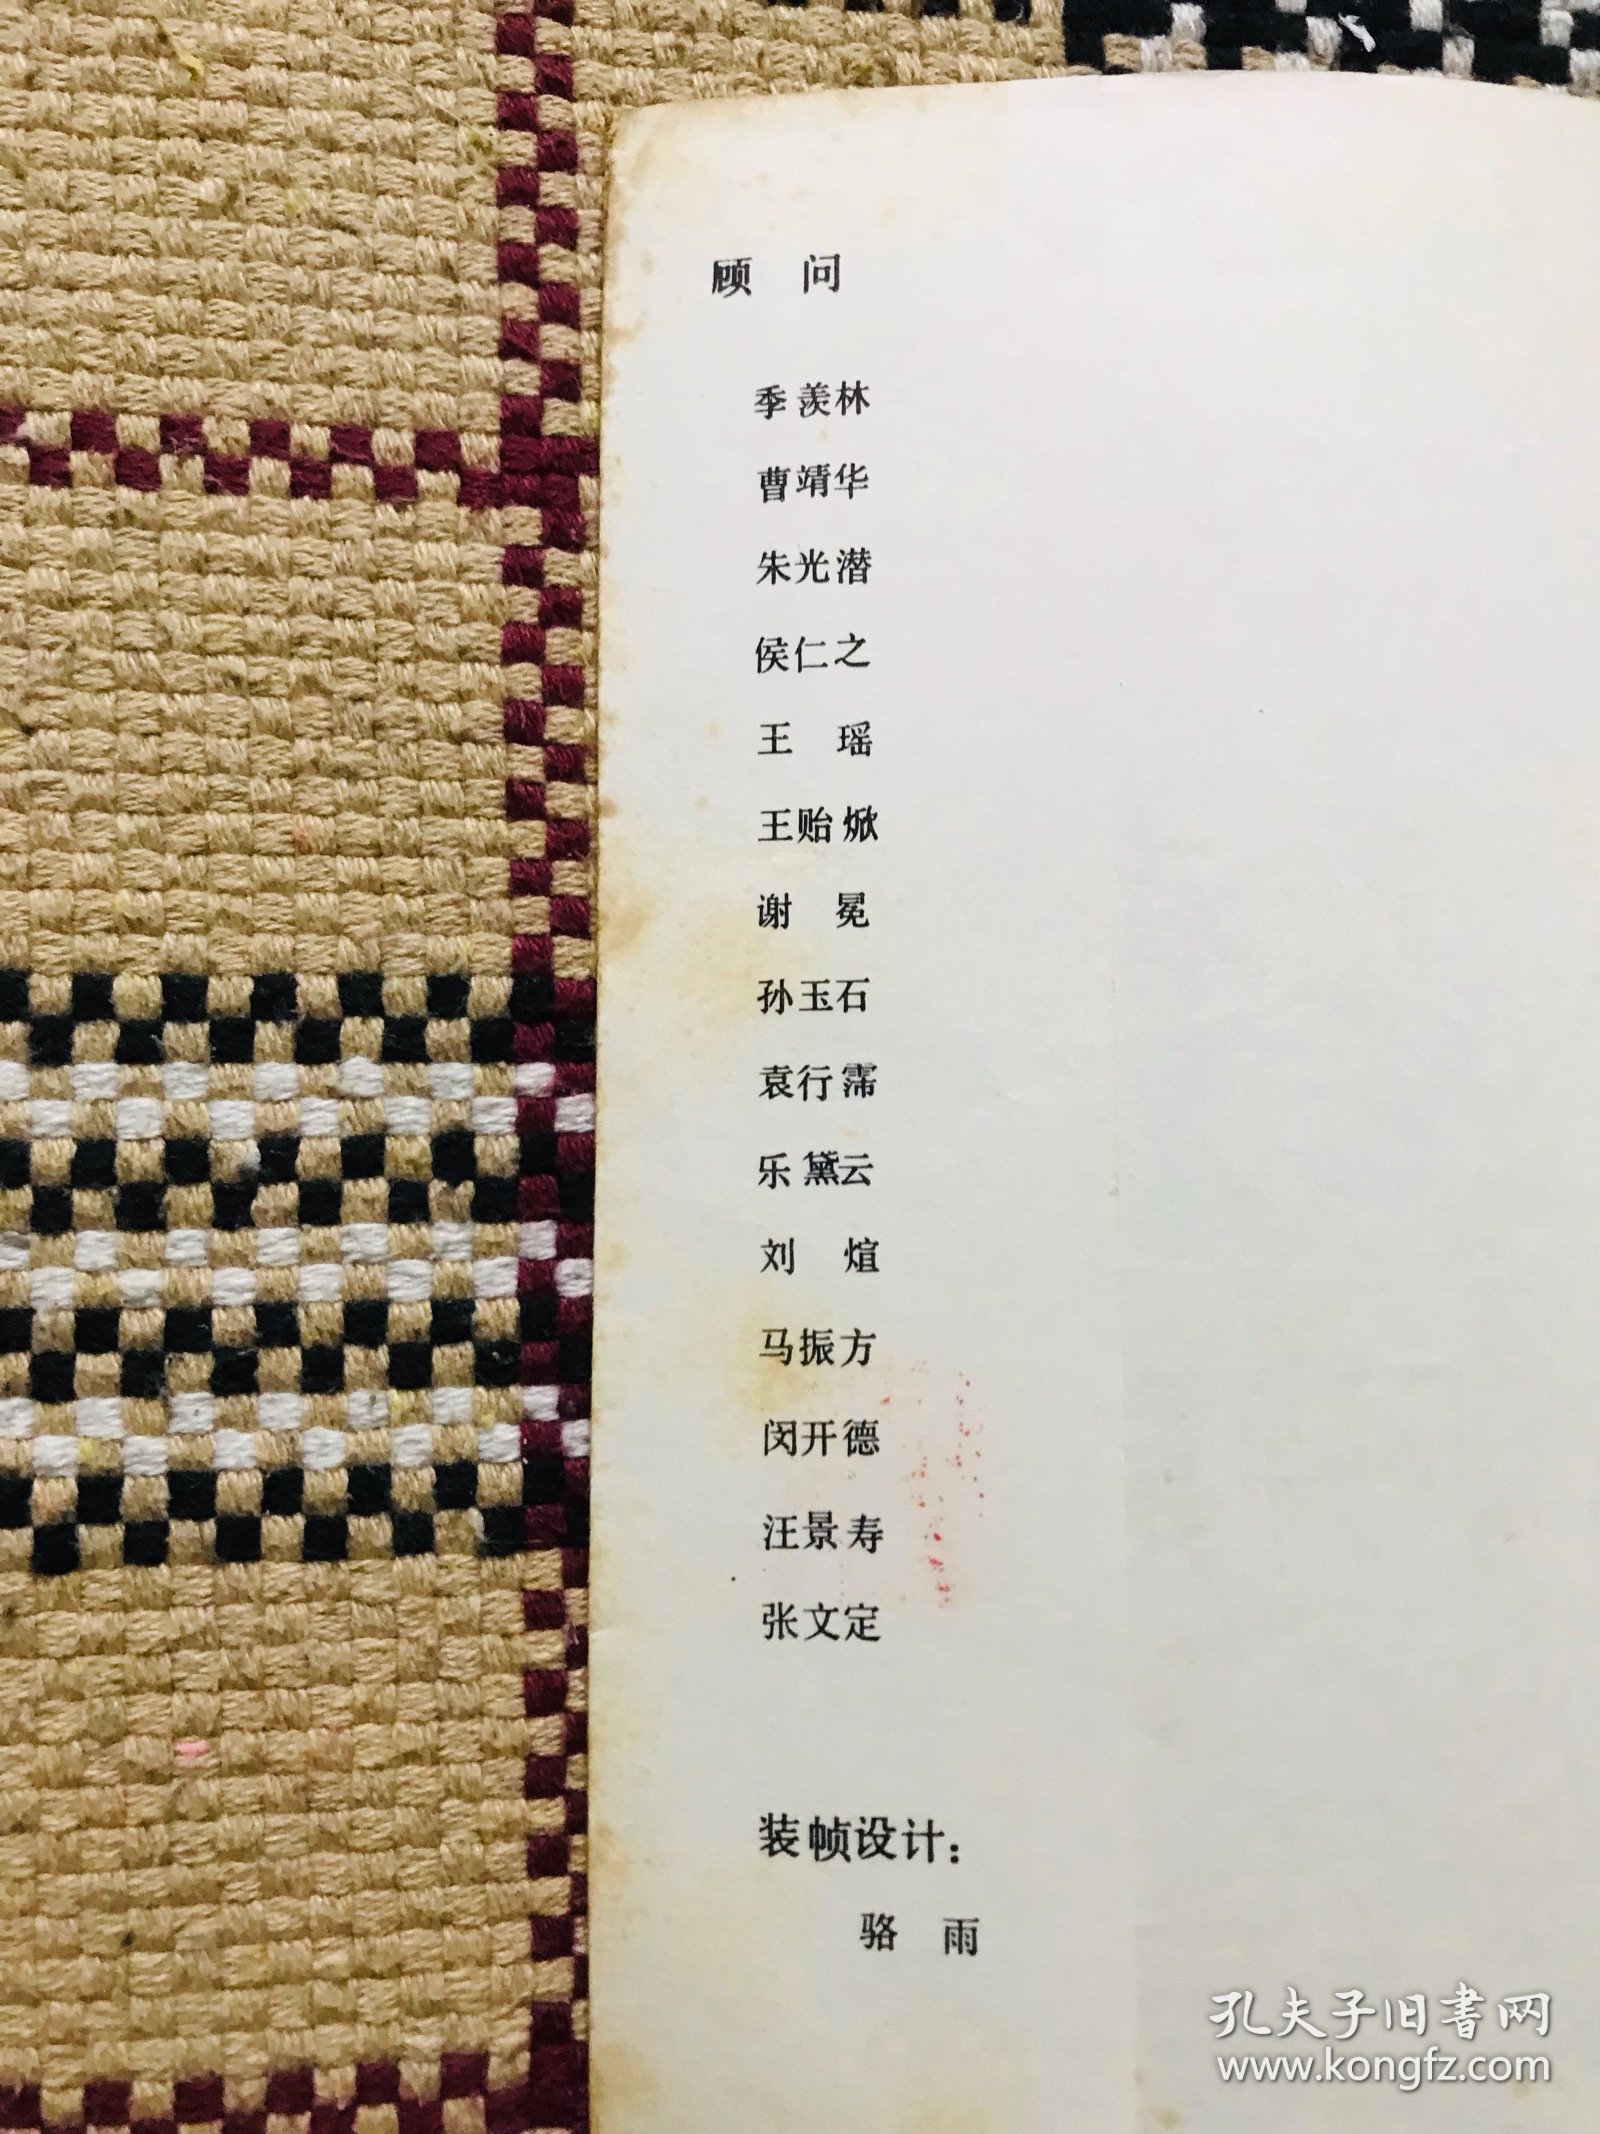 顾 问
季羡林
曹靖华
朱光潜
侯仁之
王 瑶
王贻焮
谢 冕
孙玉石
袁行霈
乐黛云
刘 煊
马振方
闵开德
汪景寿
张文定
装帧设计：
骆 雨
孔夫子旧书网
www.kongfz.com